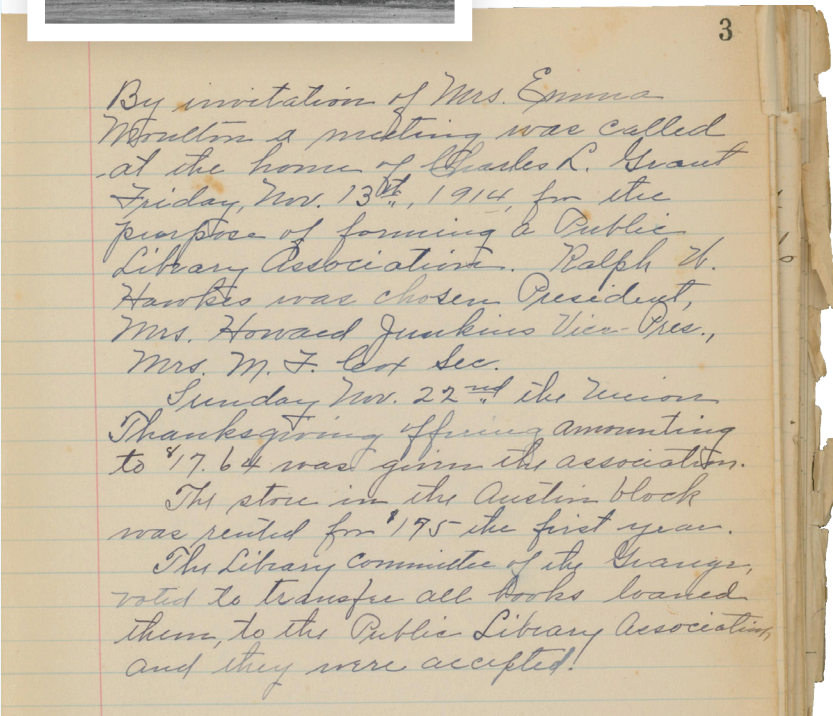 3
By invitation of Mrs. Emma
Moulton a meeting was called
at the home of Charles L. Grant
Friday, Nov. 13th, 1914, for the
purpose of forming a Public
Library Association. Ralph W.
Hawkes was chosen President,
Mrs. Howard Junkins Vice-Pres.,
Mrs. M. F. Cox Sec.
Sunday Nov. 22nd the Union
Thanksgiving offering amounting
to $17.64 was given the association.
The store in the Austin block
was rented for $175 the first year.
The Library Committee of the Grange,
voted to transfer all books loaned
them, to the Public Library Association,
and they were accepted.